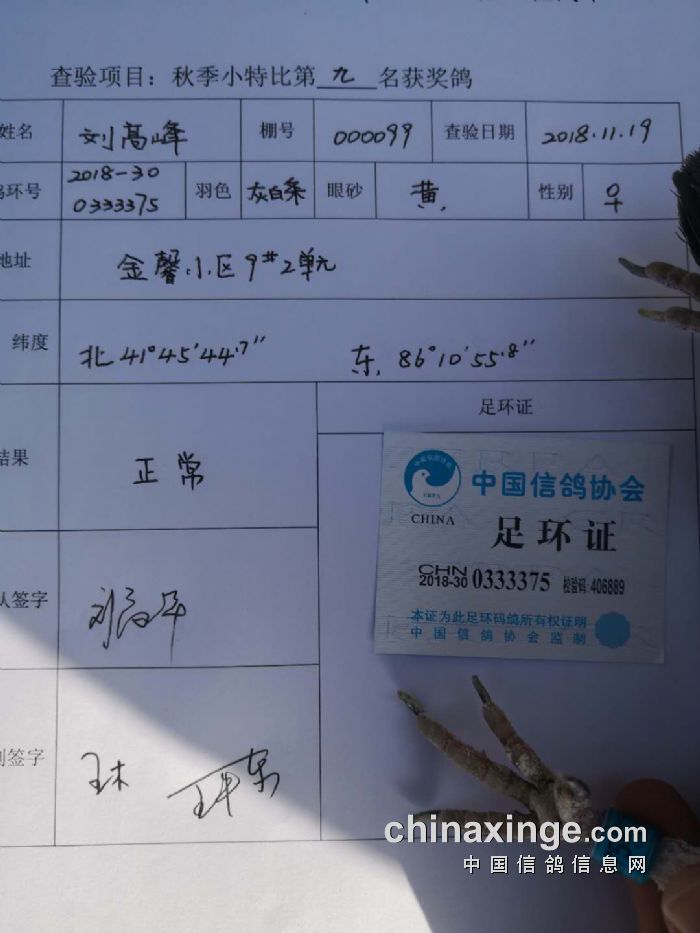 查验项目：秋季小特比第九名获奖鸽
姓名 刘高峰 棚号 000099 查验日期 2018.11.19
环号 2018-30 0333375 羽色 灰白条 眼砂 黄. 性别 ♀
地址 金馨小区9#2单元
纬度 北41°45′44.7″ 东.86°10′55.8″
足环证
结果 正常
中国信鸽协会
CHINA
足环证
CHN
2018-30 0333375 校验码:406889
本证为此足环码鸽所有权证明
中国信鸽协会监制
签字
签字 王木
chinaxinge.com
中国信鸽信息网